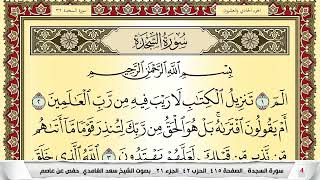 سُورَةُ السَّجْدَةِ
بِسْمِ اللَّهِ الرَّحْمَٰنِ الرَّحِيمِ
الٓمٓ ١ تَنزِيلُ الْكِتَابِ لَا رَيْبَ فِيهِ مِن رَّبِّ الْعَالَمِينَ ٢
أَمْ يَقُولُونَ افْتَرَاهُ بَلْ هُوَ الْحَقُّ مِن رَّبِّكَ لِتُنذِرَ قَوْمًا مَّا أَتَاهُم
مِّن نَّذِيرٍ مِّن قَبْلِكَ لَعَلَّهُمْ يَهْتَدُونَ ٣ اللَّهُ الَّذِي خَلَقَ
4 سورة السجدة _ الصفحة ٤١٥ _الحزب ٤٢ _الجزء ٢١ _ بصوت الشيخ سعد الغامدي_ حفص عن عاصم